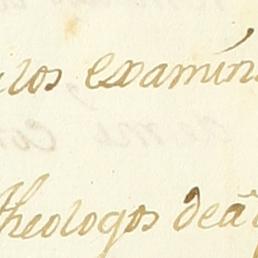 los examin
theologos deaq